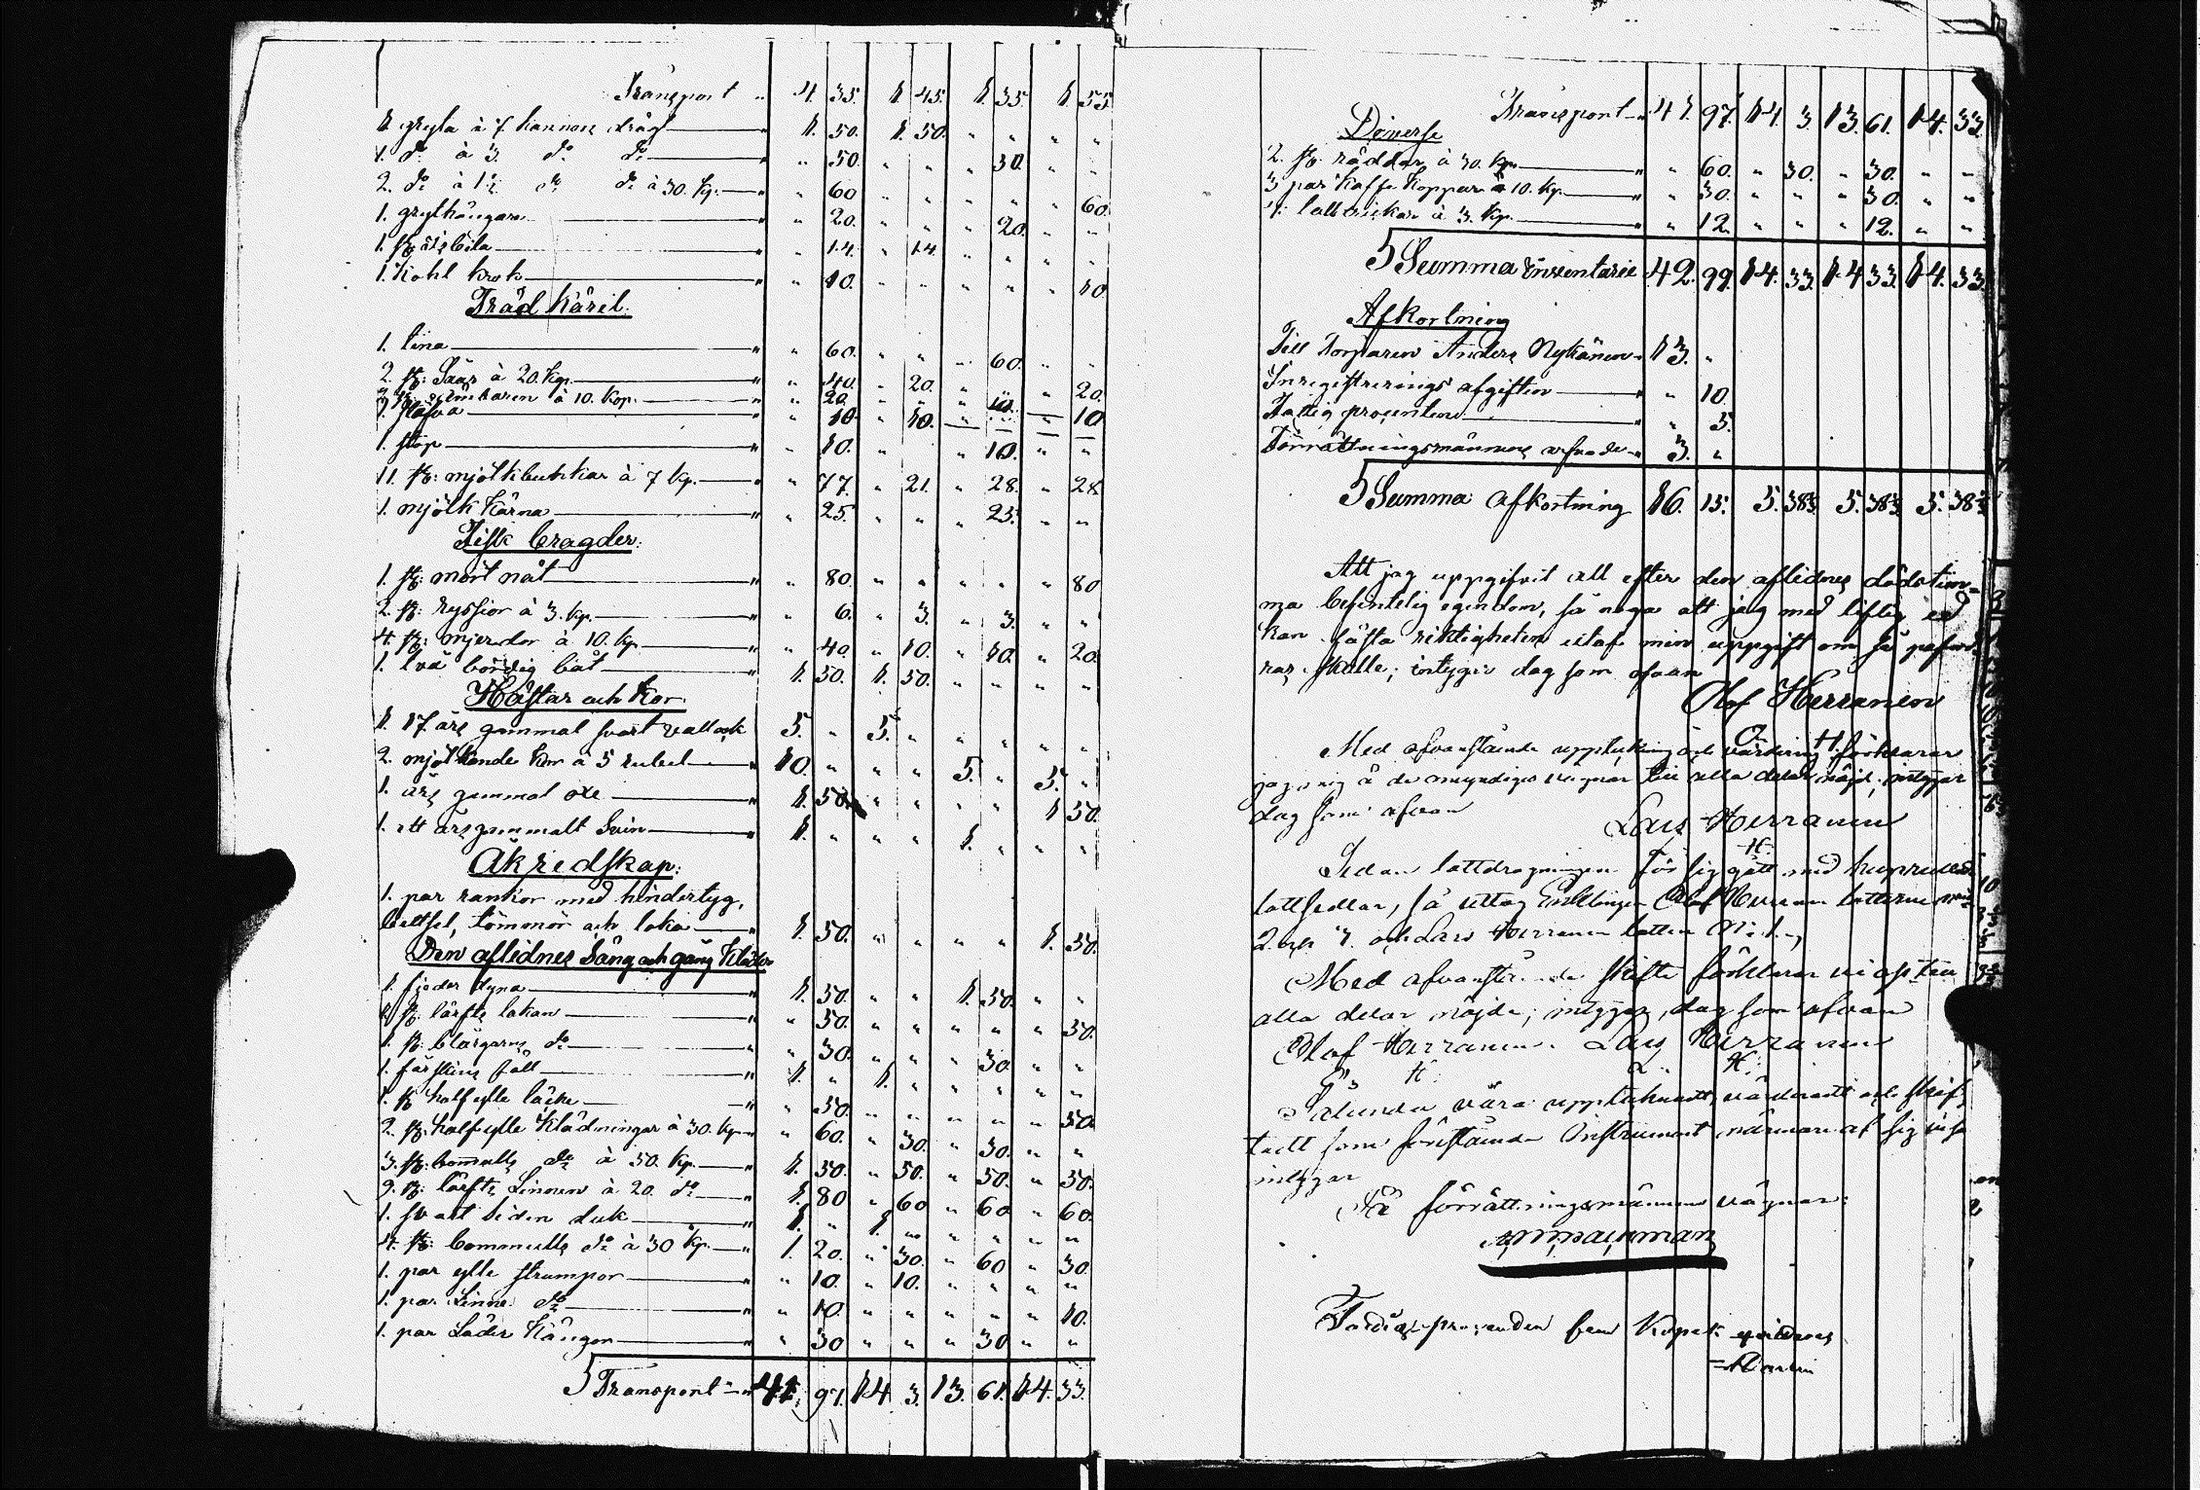 Transport " 4. 35. 1. 45. 1. 35. 1. 55.
1 gryta à 7 kannors drägt " 1. 50. 1. 50. " " " "
1. do à 3. do do " " 50. " " " 30. " "
2. do à 1½ do do à 30. Kp. " " 60 " " " " " 60.
1. grythängare " " 20. " " " 20. " "
1. st: bila " " 14. " 14. " " " "
1. Kohl krok " " 10. " " " " " 10.
Träd Käril:
1. tina " " 60. " " " 60. " "
2. st: Såar à 20. Kp. " " 40. " 20. " " " 20.
2 st: ämbaren à 10. Kop. " " 20. " " " 10. " 10
1. stäfva " " 10. " 10. " " " "
1. stop " " 10. " " " 10. " "
11. st: mjölkbuttkar à 7 Kp. " " 77. " 21. " 28. " 28.
1. mjölk Kärna " " 25. " " " 25. " "
Fisk bragder:
1. st: mört nät " " 80. " " " " " 80
2. st: ryssior à 3. Kp. " " 6. " 3. " 3. " "
4. st: mjerdor à 10. Kp " " 40. " 10. " 10. " 20.
1. två bördig båt " 1. 50. 1. 50. " " " "
Hästar och Kor.
1 17 års gammal svart vallack 5. " 5. " " " " "
2. mjölkande Kor à 5 rubel " 10. " " " 5. " 5. "
1. års gammal oxe " 1. 50. " " " " 1 50.
1. ett årsgammalt Svin " 1. " " " 1. " " "
Åkredskap:
1. par rankor med hindertyg,
bettsel, tömmor och loka " 1. 50. " " " " 1. 50.
Den aflidnes Säng och gång Kläder
1. fjeder dyna " 1. 50. " " 1. 50. " "
1 st: lärfts lakan " " 50. " " " " " 50.
1. st: blårgarns do " " 30. " " " 30. " "
1. fårskins fäll " 1. " 1. " " " " "
1. st half ylle täcke " " 50. " " " " " 50.
2. st: halfylle Klädningar à 30. Kp " " 60. " 30. " 30. " "
3. st: bomulls do à 50. Kp. " 1. 50. " 50. " 50. " 50.
9. st: lärfts Linnen à 20. do " 1. 80 " 60 " 60 " 60.
1. svart siden duk " 1. " 1. " " " " "
4. st: bommulls do à 30 Kp. " 1. 20. " 30. " 60 " 30.
1. par ylle strumpor " " 10. " 10. " " " "
1. par Linne do " " 10. " " " " " 10.
1. par Läder Kängor " " 30 " " " 30 " "
Transport " 41. 97. 14. 3. 13. 61. 14. 33.
Transport " 41. 97. 14. 3. 13. 61. 14. 33.
Diverse
2. st. à 30. Kp. " " 60. " 30. " 30. " "
3 par Kaffe Koppar à 10. Kp. " " 30. " " " 30. " "
4. à 3. Kp. " " 12. " " " 12. " "
Summa Inventarie 42. 99. 14. 33. 14 33. 14. 33.
Afkortning
Till Torparen Anders Nykänen 13. "
Inregistrerings afgiften " " 10.
Fattig procenten " " 5.
Förrättningsmännens arfvode " 3. "
Summa afkortning 16. 15. 5. 38⅓. 5. 38⅓. 5. 38⅓
Att jag uppgifvit all efter den aflidnes dödstim-
ma befintelig egendom, så noga att jag med liflig ed
kan fästa riktigheten utaf min uppgift om så
ras skulle; intygar dag som ofvan
Olof Herranen
O. H.
Med ofvanstående uppteckning och värdering förklarar
jag mig å de omyndiges vägnar till alla delar nöjd, intygar
dag som ofvan
Lars Herranen
H.
Sedan lottdragningen för sig gått med
lottsedlar, så uttog Enklingen Olof Herranen lotterne
2. och 3. och Lars Herranen lotten No 1.
Med ofvanstående skifte förklarar vi oss till
alla delar nöjde; intygar, dag som ofvan
Olof Herranen. Lars Herranen
H. H.
Sålunda vara upptecknadt, värderadt och skif-
tadt som förestående Instrument närmare af sig visar
intygar
På förrättningsmännens vägnar:
Fattig procenten fem Kopek